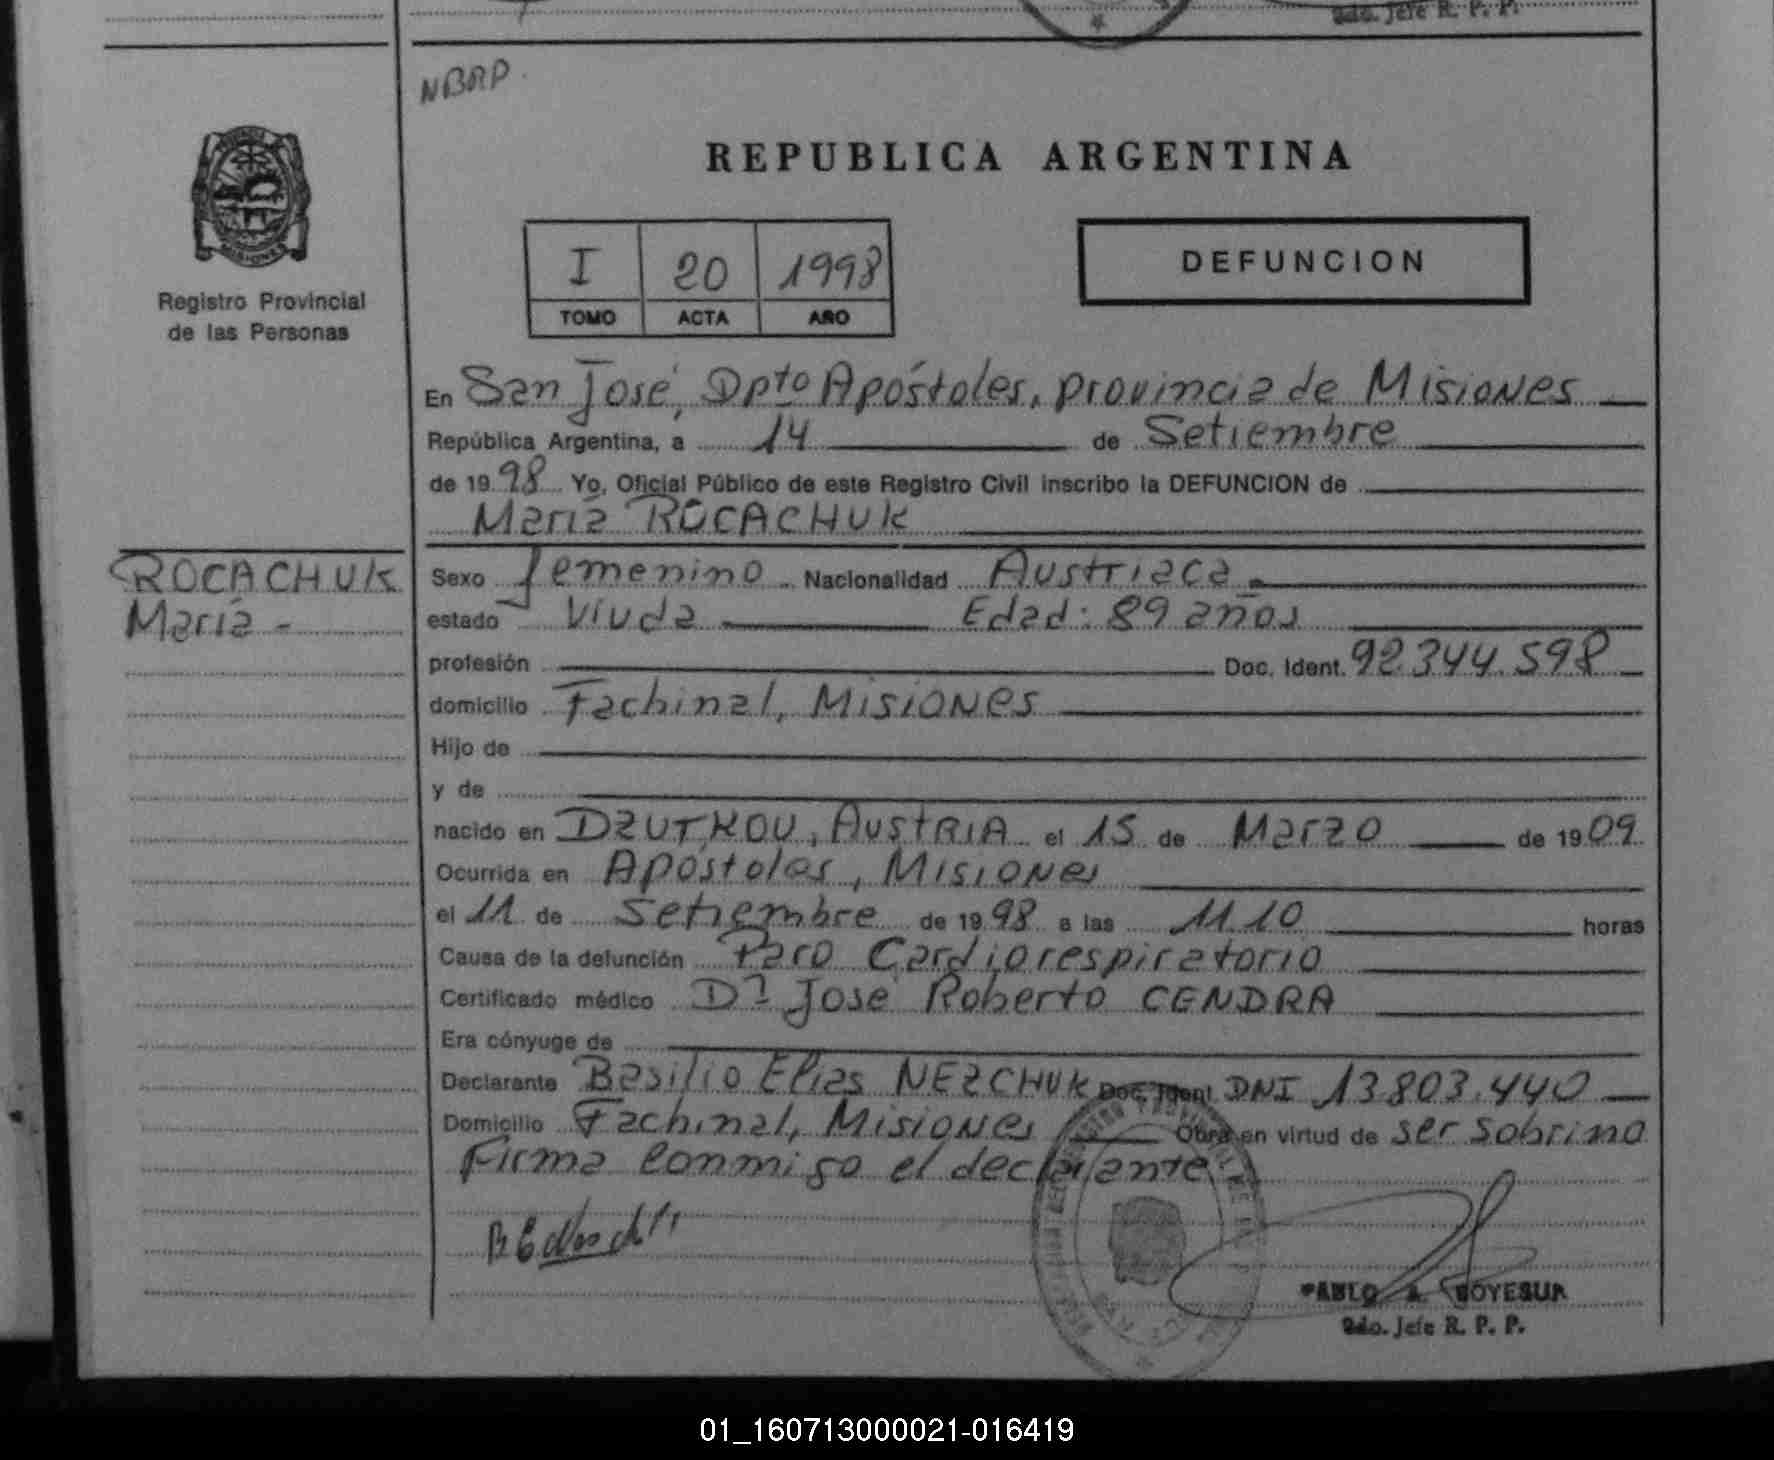 2do. Jefe R. P. P.
NBRP.
REPUBLICA ARGENTINA
I 20 1998
TOMO ACTA AÑO
DEFUNCION
MISIONES
Registro Provincial
de las Personas
En San José, Dpto Apóstoles, provincia de Misiones
República Argentina, a 14 de Setiembre
de 1998 Yo, Oficial Público de este Registro Civil inscribo la DEFUNCION de
María ROCACHUK
ROCACHUK
María -
Sexo femenino Nacionalidad Austriaca
estado Viuda Edad: 89 años
profesión Doc. Ident. 92.344.598
domicilio Fachinal, Misiones
Hijo de
y de
nacido en DZUTKOU, AUSTRIA el 15 de Marzo de 1909
Ocurrida en Apóstoles, Misiones
el 11 de Setiembre de 1998 a las 11.10 horas
Causa de la defunción Paro Cardiorespiratorio
Certificado médico Dr José Roberto CENDRA
Era cónyuge de
Declarante Basilio Elias NEZCHUK Doc. Ident. DNI 13.803.440
Domicilio Fachinal, Misiones Obra en virtud de ser sobrino
Firma conmigo el declarante
2do. Jefe R. P. P.
01_160713000021-016419